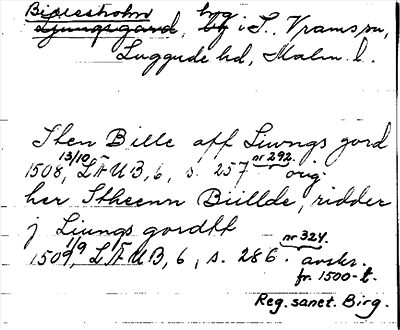 Bjersholm hrg
Ljungsgård, by i S. Vram sn,
Luggude hd, Malm. l.
Sten Bille aff Liwngs gord
1508 13/10, LÄUB, 6, s. 257 nr 292. orig.
her Stheenn Biillde, ridder
j Liungs gordtt
1509 1/9, LÄUB, 6, s. 286. nr 324. avskr.
fr. 1500-t.
Reg. sanct. Birg.